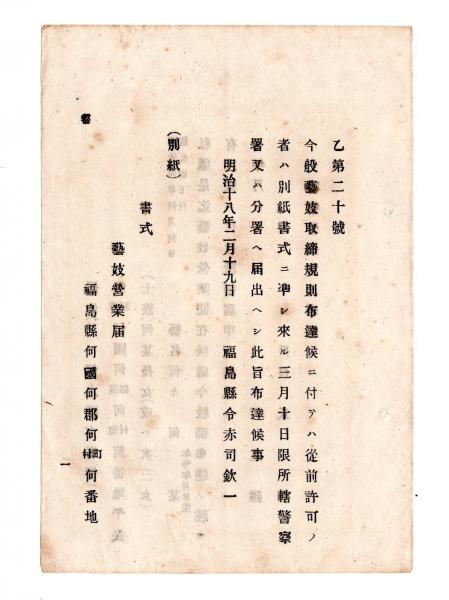 乙第二十號
今般藝妓取締規則布達候ニ付テハ從前許可ノ
者ハ別紙書式ニ準シ來ル三月十日限所轄警察
署又ハ分署ヘ届出ヘシ此旨布達候事
明治十八年二月十九日 福島縣令赤司欽一
(別紙)
書式
藝妓營業届
福島縣何國何郡何町村何番地
一